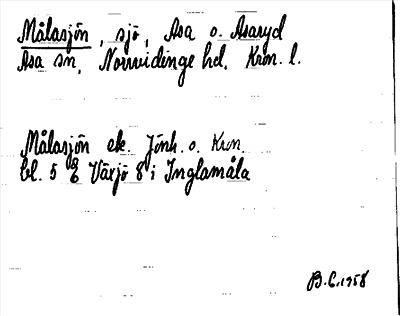 Målasjön, sjö, Asa o. Asaryd
Asa sn, Norrvidinge hd. Kron. l.
Målasjön ek. Jönk. o. Kron
bl. 5 & Växjö 8 i Inglamåla
B.C. 1958